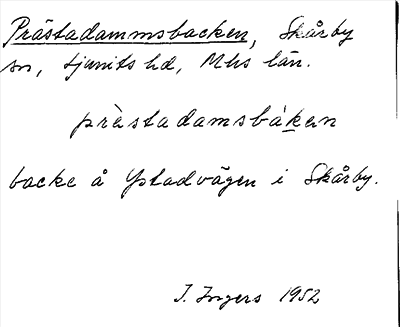 Prästadammsbacken, Skårby
sn, Ljunits hd, Mhs län.
prästadamsbàken
backe å Ystadvägen i Skårby.
I. Ingers 1952